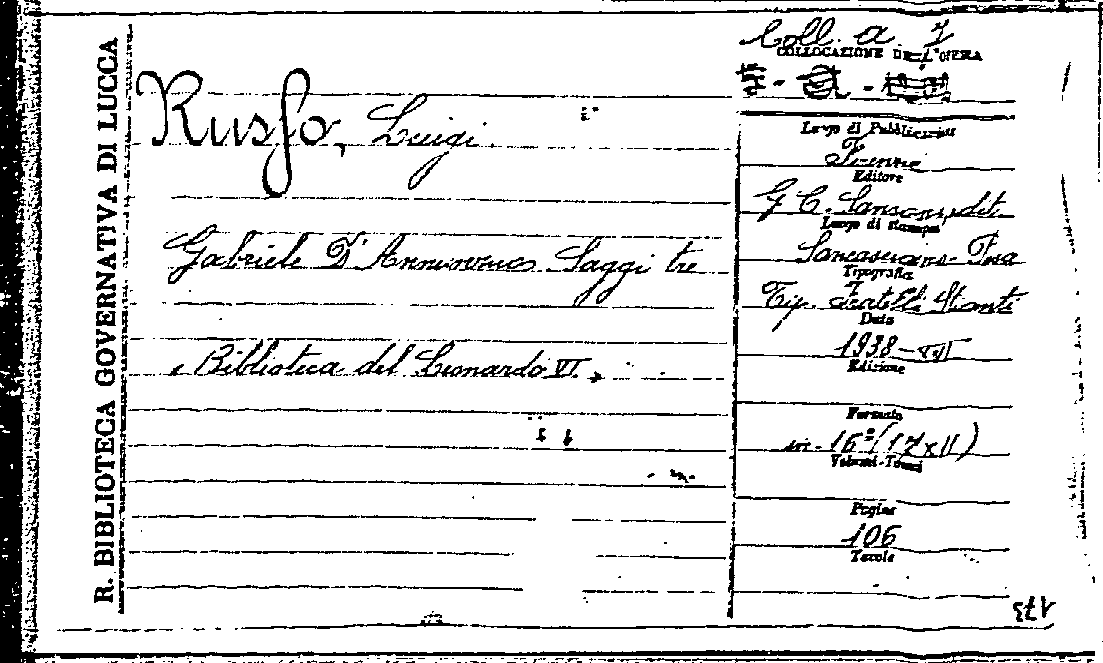 R. BIBLIOTECA GOVERNATIVA DI LUCCA
Coll. a 7
COLLOCAZIONE DELL'OPERA
Russo, Luigi.
Luogo di Pubblicazione
Firenze
Editore
G. C. Sansoni, edit.
Luogo di stampa
Gabriele D'Annunzio Saggi tre
Sancasciano-Pesa
Tipografia
Tip. Fratelli Stianti
Data
1938-XVI
Edizione
"Biblioteca del Leonardo VI"
Formato
in-16° (17x11)
Volumi-Tomi
Pagine
106
Tavole